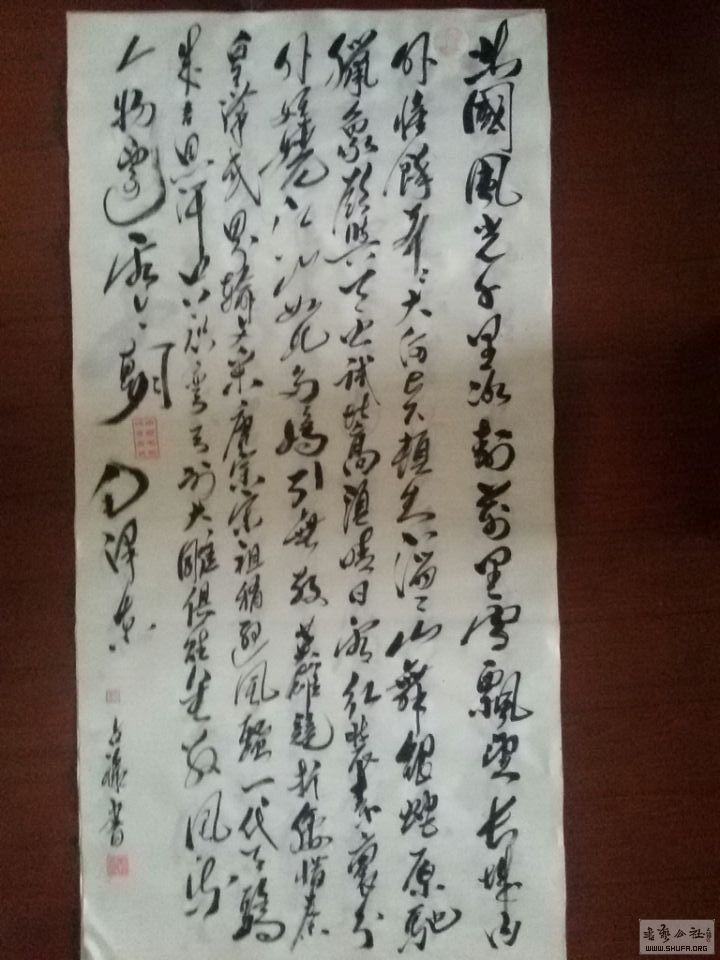 北國風光千里冰封萬里雪飄望長城内
外惟餘莽々大河上下頓失滔々山舞銀蛇原馳
蠟象欲與天公試比高須晴日看红裝素裹分
外妖嬈江山如此多嬌引無數英雄競折腰惜秦
皇漢武畧輸文采唐宗宋祖稍遜風騷一代天驕
成吉思汗只識彎弓射大雕俱往矣數風流
人物還看今朝 毛澤东
書
书艺公社
WWW.SHUFA.ORG